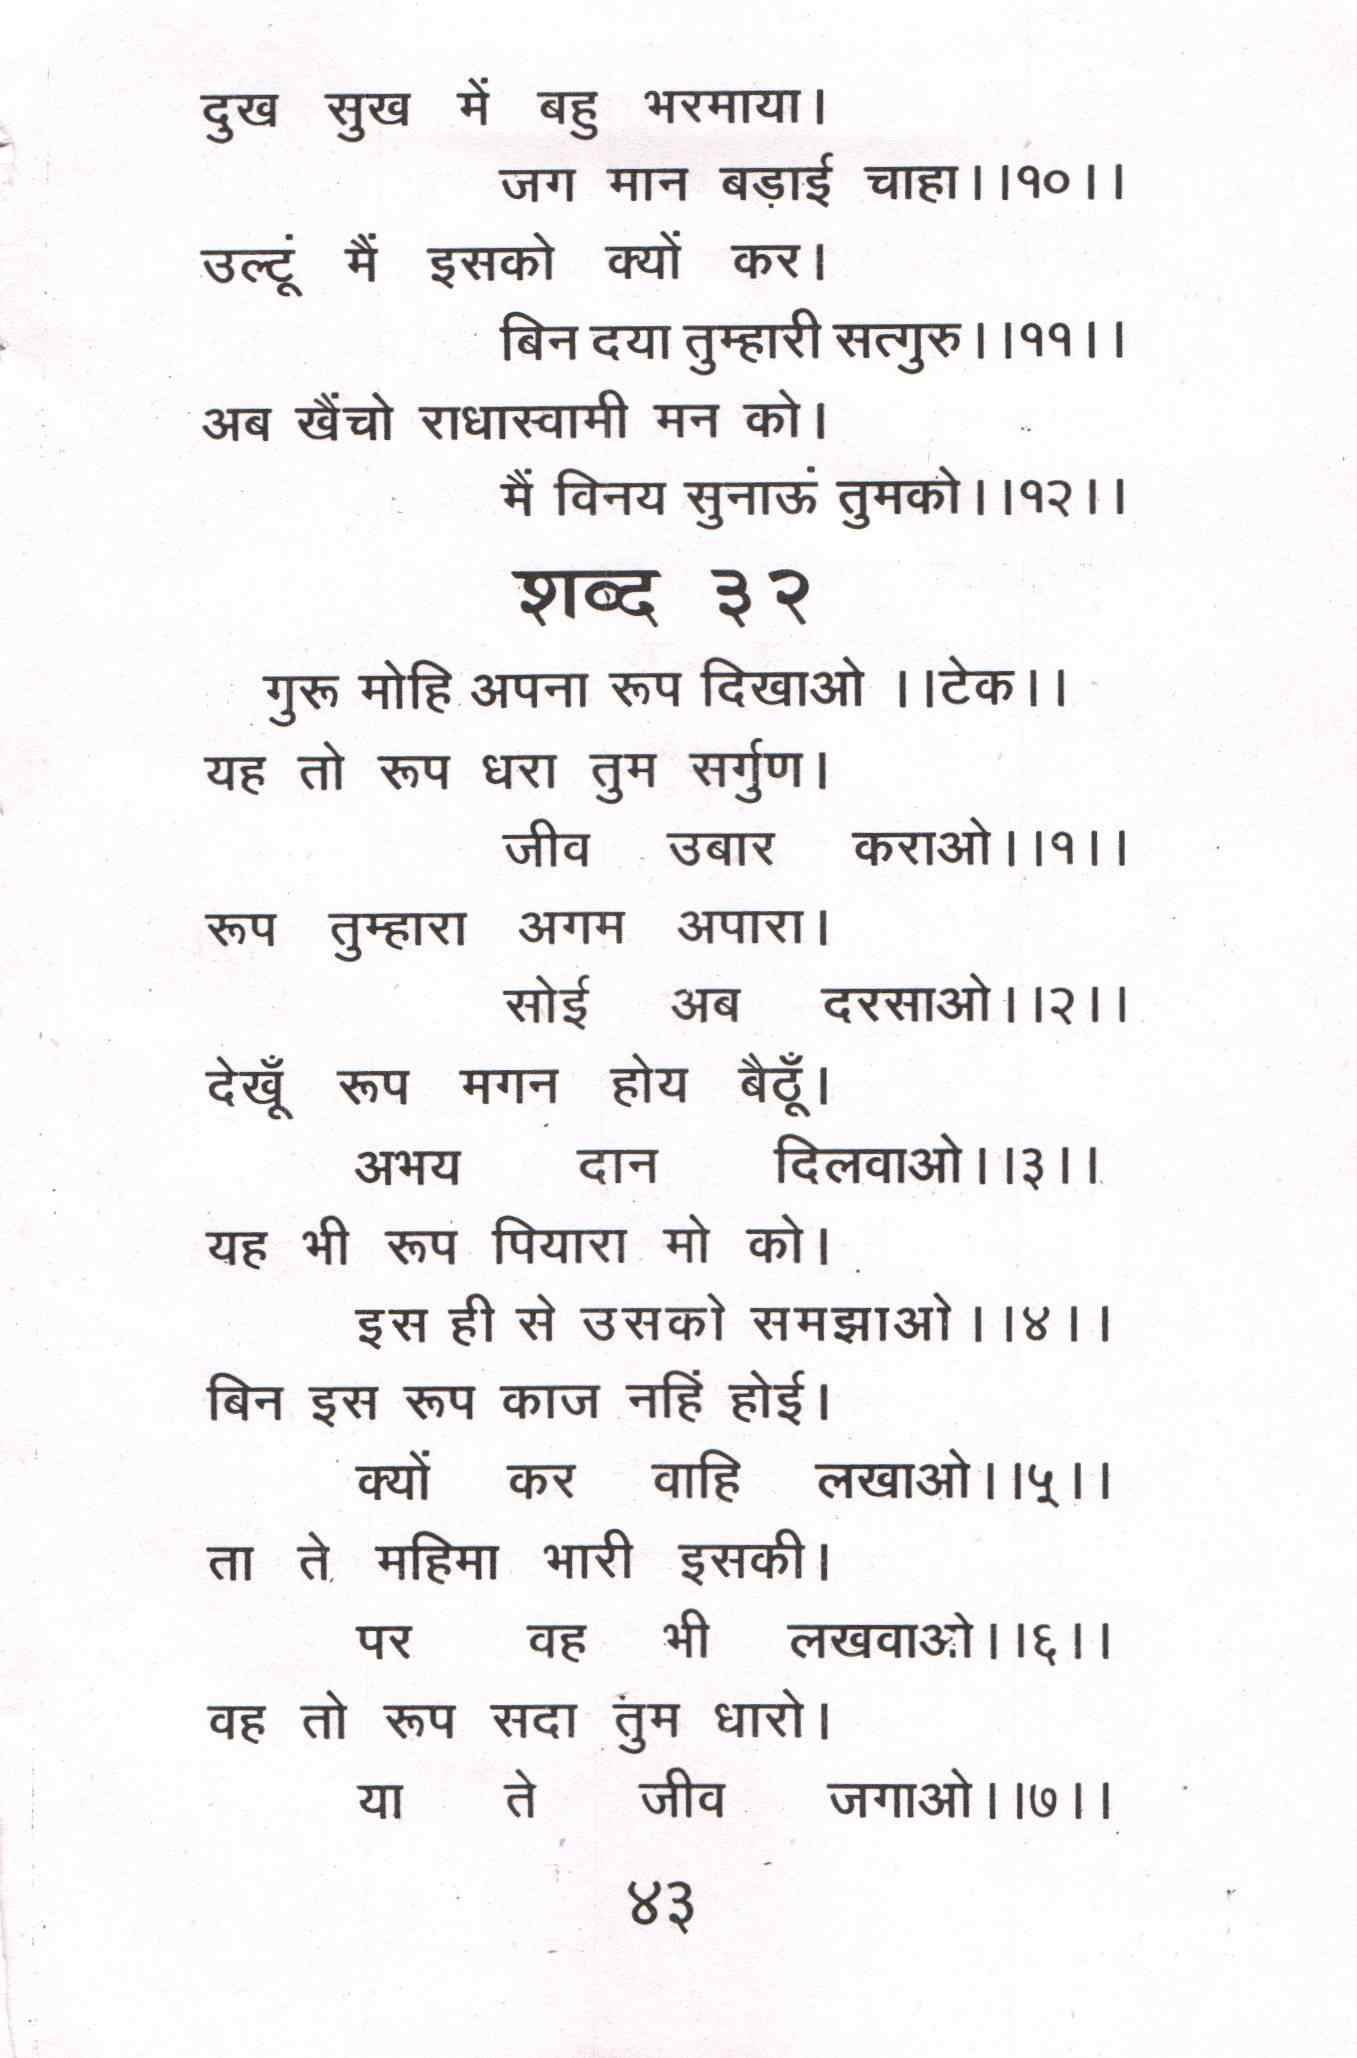 दुख सुख में बहु भरमाया।
जग मान बड़ाई चाहा।।१०।।
उल्टूं मैं इसको क्यों कर।
बिन दया तुम्हारी सत्गुरु।।११।।
अब खैंचो राधास्वामी मन को।
मैं विनय सुनाऊं तुमको।।१२।।
शब्द ३२
गुरू मोहि अपना रूप दिखाओ ।।टेक।।
यह तो रूप धरा तुम सर्गुण।
जीव उबार कराओ।।१।।
रूप तुम्हारा अगम अपारा।
सोई अब दरसाओ।।२।।
देखूँ रूप मगन होय बैठूँ।
अभय दान दिलवाओ।।३।।
यह भी रूप पियारा मो को।
इस ही से उसको समझाओ।।४।।
बिन इस रूप काज नहिं होई।
क्यों कर वाहि लखाओ।।५।।
ता ते महिमा भारी इसकी।
पर वह भी लखवाओ।।६।।
वह तो रूप सदा तुम धारो।
या ते जीव जगाओ।।७।।
४३